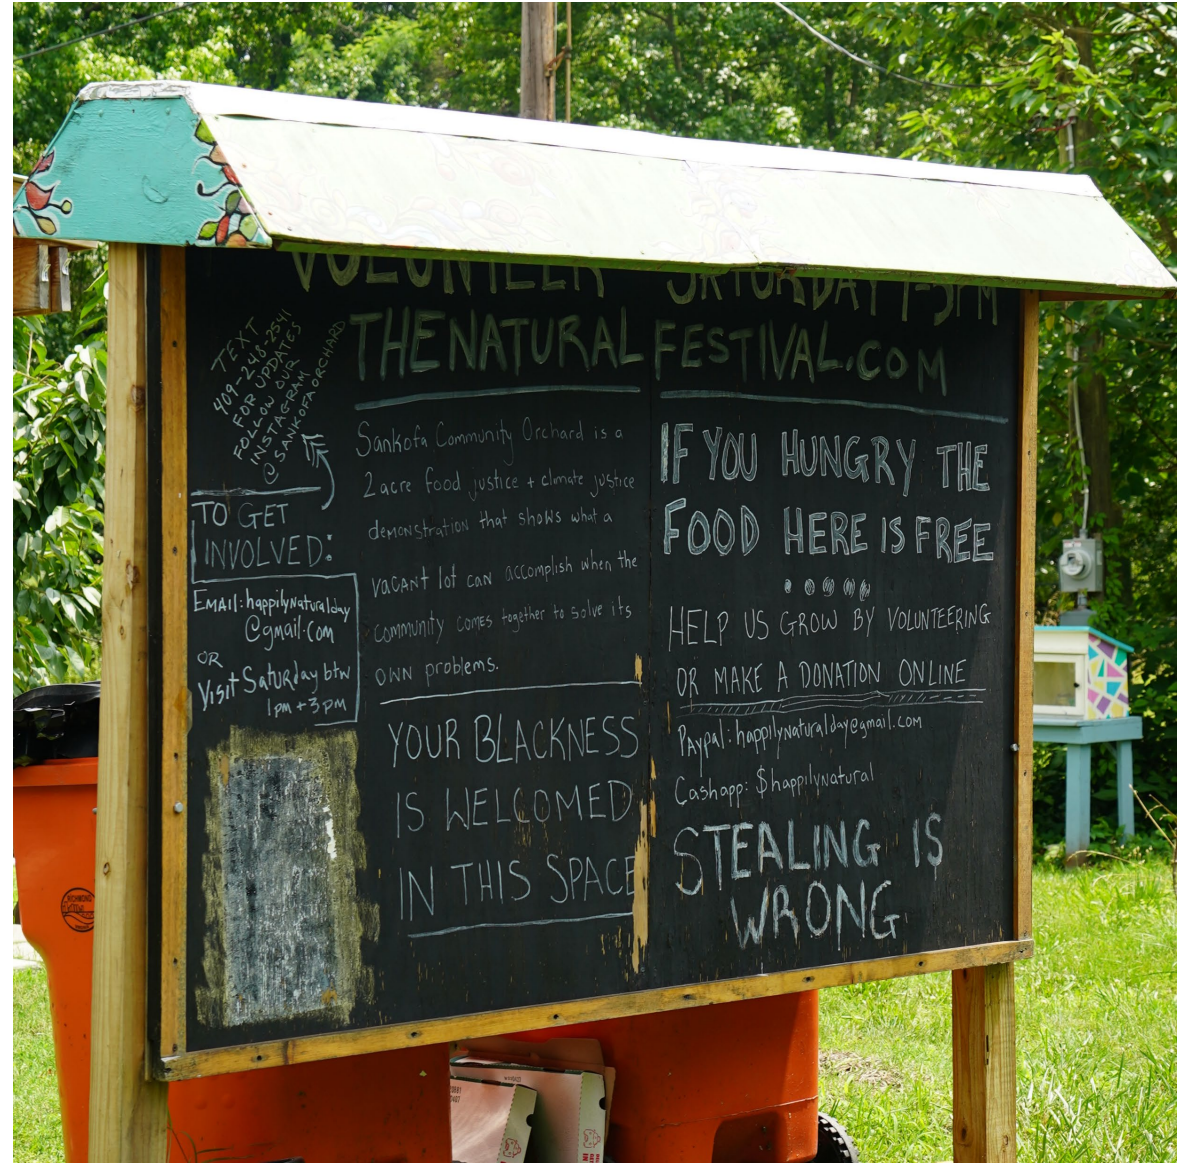 VOLUNTEER SATURDAY 1-3PM
THENATURALFESTIVAL.COM
TEXT
409-248-2541
FOR UPDATES
FOLLOW OUR
INSTAGRAM
@SANKOFAORCHARD
TO GET
INVOLVED:
EMAIL: happilynaturalday
@gmail.com
OR
Visit Saturday btw
1pm + 3pm
Sankofa Community Orchard is a
2 acre food justice + climate justice
demonstration that shows what a
vacant lot can accomplish when the
community comes together to solve its
own problems.
YOUR BLACKNESS
IS WELCOMED
IN THIS SPACE
IF YOU HUNGRY THE
FOOD HERE IS FREE
HELP US GROW BY VOLUNTEERING
OR MAKE A DONATION ONLINE
Paypal: happilynaturalday@gmail.com
Cashapp: $happilynatural
STEALING IS
WRONG
RICHMOND